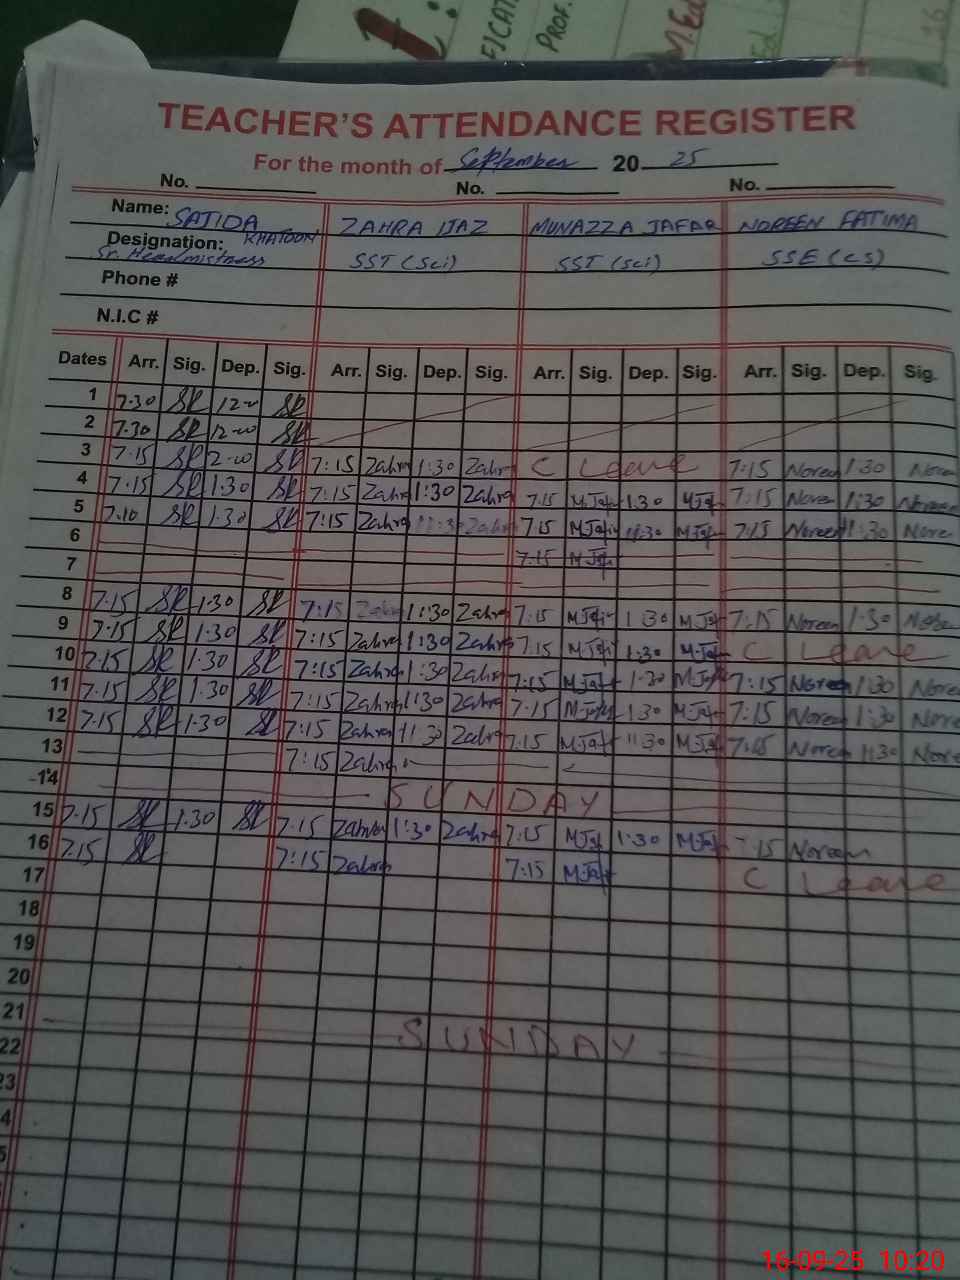 FICAT
PROF.
M.Ed
Ed
TEACHER'S ATTENDANCE REGISTER
For the month of September 20 25
No. No. No.
Name: SAJIDA KHATOON ZAHRA IJAZ MUNAZZA JAFAR NOREEN FATIMA
Designation: Sr. Headmistress SST (Sci) SST (Sci) SSE (CS)
Phone #
N.I.C #
Dates Arr. Sig. Dep. Sig. Arr. Sig. Dep. Sig. Arr. Sig. Dep. Sig. Arr. Sig. Dep. Sig.
1 7.30 SR 12-00 SR
2 7.30 SR 12-00 SR
3 7.15 SR 12-00 SR 7:15 Zahra 1:30 Zahra C Leave 7:15 Noreen 1:30 Noreen
4 7:15 SR 1:30 SR 7:15 Zahra 1:30 Zahra 7:15 M.Jafr 1:30 M.Jafr 7:15 Noreen 1:30 Noreen
5 7:10 SR 1:30 SR 7:15 Zahra 1:30 Zahra 7:15 M.Jafr 1:30 M.Jafr 7:15 Noreen 1:30 Noreen
6 7:15 M.Jafr
7
8 7:15 SR 1:30 SR 7:15 Zahra 1:30 Zahra 7:15 M.Jafr 1:30 M.Jafr 7:15 Noreen 1:30 Noreen
9 7:15 SR 1:30 SR 7:15 Zahra 1:30 Zahra 7:15 M.Jafr 1:30 M.Jafr C Leave
10 7:15 SR 1:30 SR 7:15 Zahra 1:30 Zahra 7:15 M.Jafr 1:30 M.Jafr 7:15 Noreen 1:30 Noreen
11 7:15 SR 1:30 SR 7:15 Zahra 1:30 Zahra 7:15 M.Jafr 1:30 M.Jafr 7:15 Noreen 1:30 Noreen
12 7:15 SR 1:30 SR 7:15 Zahra 11:30 Zahra 7:15 M.Jafr 11:30 M.Jafr 7:15 Noreen 11:30 Noreen
13 7:15 Zahra
14 SUNDAY
15 7.15 SR 1:30 SR 7:15 Zahra 1:30 Zahra 7:15 M.Jafr 1:30 M.Jafr 7:15 Noreen
16 7.15 SR 7:15 Zahra 7:15 M.Jafr C Leave
17
18
19
20
21 SUNDAY
22
23
4
5
16-09-25 10:20